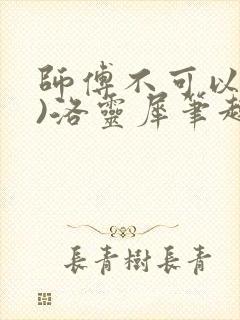 師傅不可以
)洛靈犀筆趣
長青樹長青